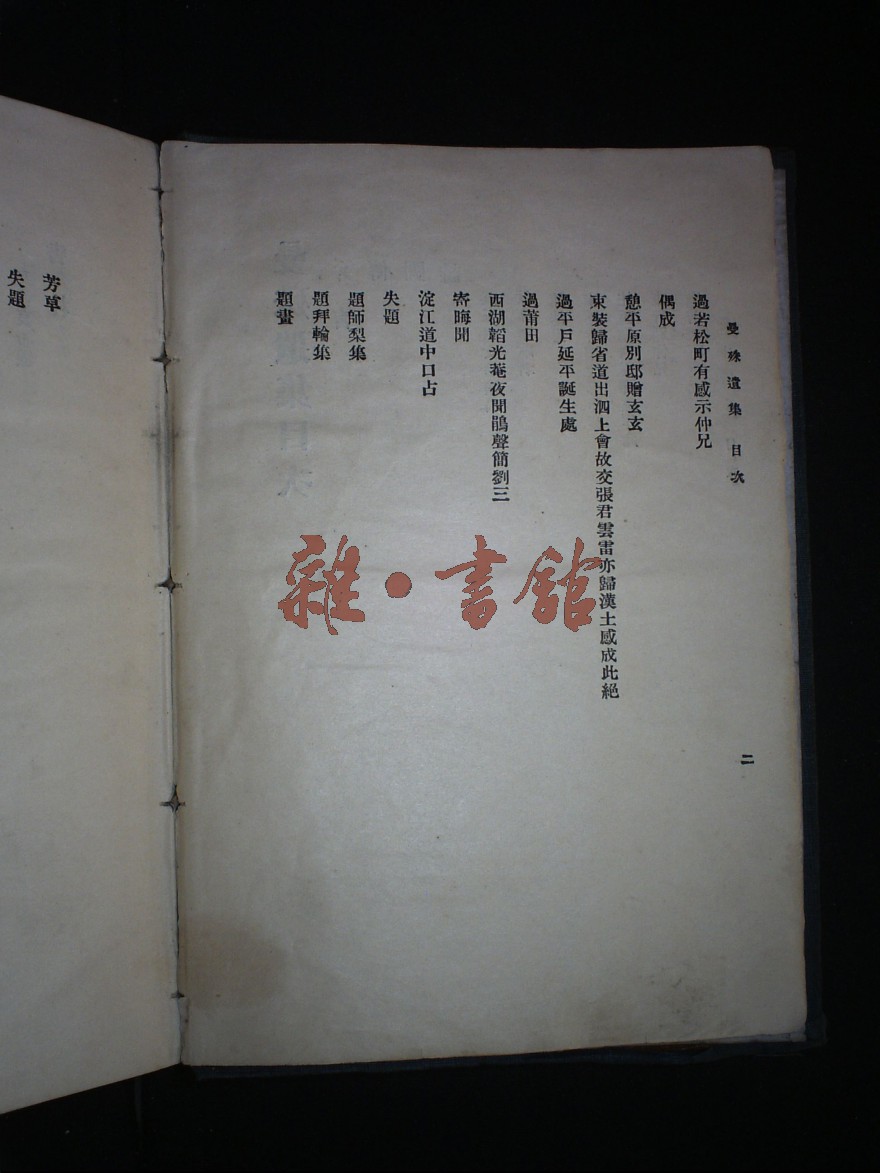 曼殊遺集 目次
過若松町有感示仲兄
偶成
憩平原別邸贈玄玄
束裝歸省道出泗上會故交張君雲雷亦歸漢土感成此絕
過平戶延平誕生處
過莆田
西湖韜光菴夜聞鵑聲簡劉三
寄晦聞
淀江道中口占
失題
題師梨集
題拜輪集
題畫
二
芳草
失題
雜·書館